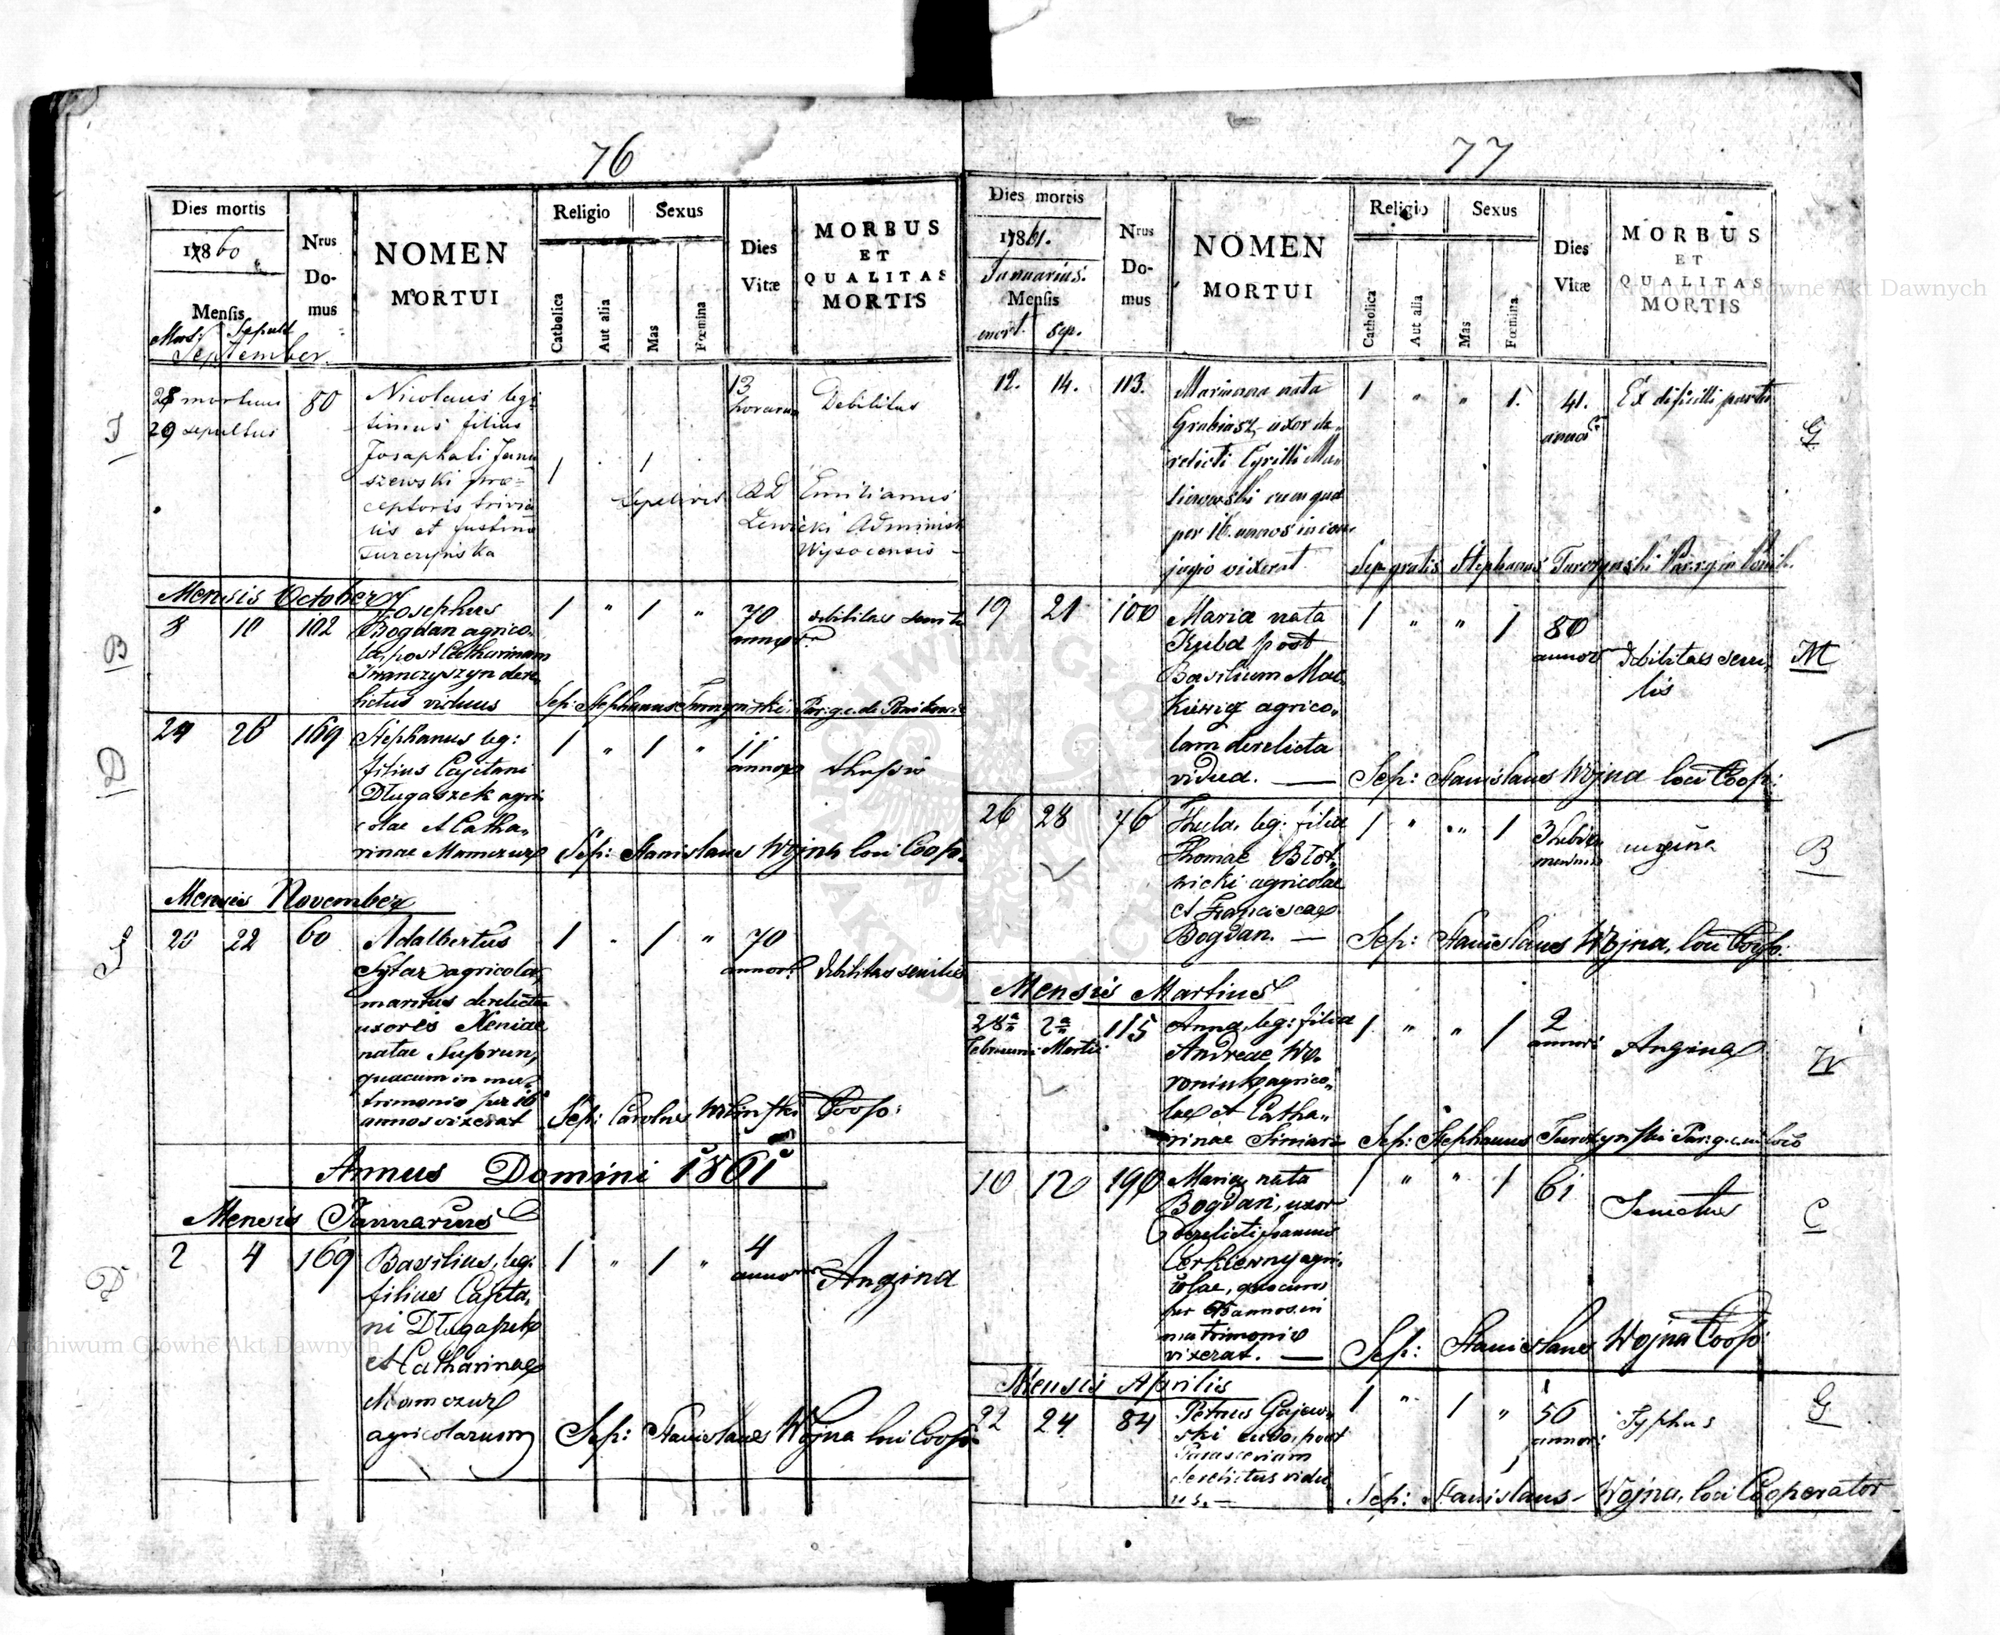 76
Dies mortis
1860
Mensis
Mort: Sepult
September
Nrus
Do-
mus
NOMEN
MORTUI
Religio
Catholica
Aut alia
Sexus
Mas
Fœmina
Dies
Vitæ
MORBUS
ET
QUALITAS
MORTIS
28 mortuus
29 sepultus
80
Nicolaus legi-
timus filius
Josaphati Janu
szewski præ-
ceptoris trivia
lis et Justina
Turczyńska
1
1
13
horarum
Debilitas
sepelivit
Emilianus
Lewicki Administ
Wysocensis
J
Mensis October
8
10
102
Josephus
Bogdan agrico-
la, post Catharinam
Iwanczyszyn dere-
lictus viduus
1 " 1 "
70
annor
debilitas senilis
Sep: Stephanus Turczynski, Par: g. c. de Ponikowica
B
24
26
169
Stephanus leg:
filius Cajetani
Długaszek agri
colae et Catha-
rinae Mamczur
1 " 1 "
11
annor
Sep: Stanislaus Wojna loci Coop.
D
Mensis November
20
22
60
Adalbertus
Sytar agricola,
maritus derelictae
uxoris Xeniae
natae Suprun,
quacum in ma-
trimonio per 16
annos vixerat
1 " 1 "
70
annor:
debilitas senilis
Sep: Carolus Coop:
S
Annus Domini 1861
Mensis Januarius
2
4
169
Basilius, leg:
filius Cajeta-
ni Długaszek
et Catharinae
Mamczur
agricolarum
1 " 1 "
4
annorum
Angina
Sep: Stanislaus Wojna loci Coop.
D
77
Dies mortis
1861.
Januarius.
Mensis
mort. sep.
Nrus
Do-
mus
NOMEN
MORTUI
Religio
Catholica
Aut alia
Sexus
Mas
Fœmina
Dies
Vitæ
MORBUS
ET
QUALITAS
MORTIS
12. 14. 113.
Marianna nata
Grabiasz, uxor de-
relicti Cyrilli Ma-
linowski cum qua
per 16 annos in con-
jugio vixerat
1 " " 1.
41.
annor
Ex dificilli partu
Sep gratis Stephanus Turczynski Par. g.
G
19 21 100
Maria nata
Kuba post
Basilium Mac-
kiewicz agrico-
lam derelicta
vidua. —
1 " " 1
80
annor
debilitas seni-
lis
Sep: Stanislaus Wojna loci Coop:
M
26 28 76
Thecla, leg: filia
Thomae Błot-
nicki agricolae
et Franciscae
Bogdan. —
1 " " 1
3
angina
Sep: Stanislaus Wojna, loci Coop:
B
Mensis Martius
28a 2a 115
Februarii Martii
Anna, leg: filia
Andreae Wo-
roniuk agrico-
lae et Catha-
rinae
1 " " 1
2
annor:
Angina
Sep: Stephanus Turczynski Par: g. c. in loco
W
10 12 190
Maria nata
Bogdan, uxor
derelicti Joannis
Cerkiewny agri-
colae, quocum
per annos in
matrimonio
vixerat. —
1 " " 1
61
Senectus
Sep: Stanislaus Wojna Coop:
C
Mensis Aprilis
22 24 84
Petrus Gajew-
ski post
Parasceviam
derelictus vidu-
us. —
1 " 1 "
56
annor:
Typhus
Sep: Stanislaus Wojna, loci Cooperator
G
Archiwum Główne Akt Dawnych